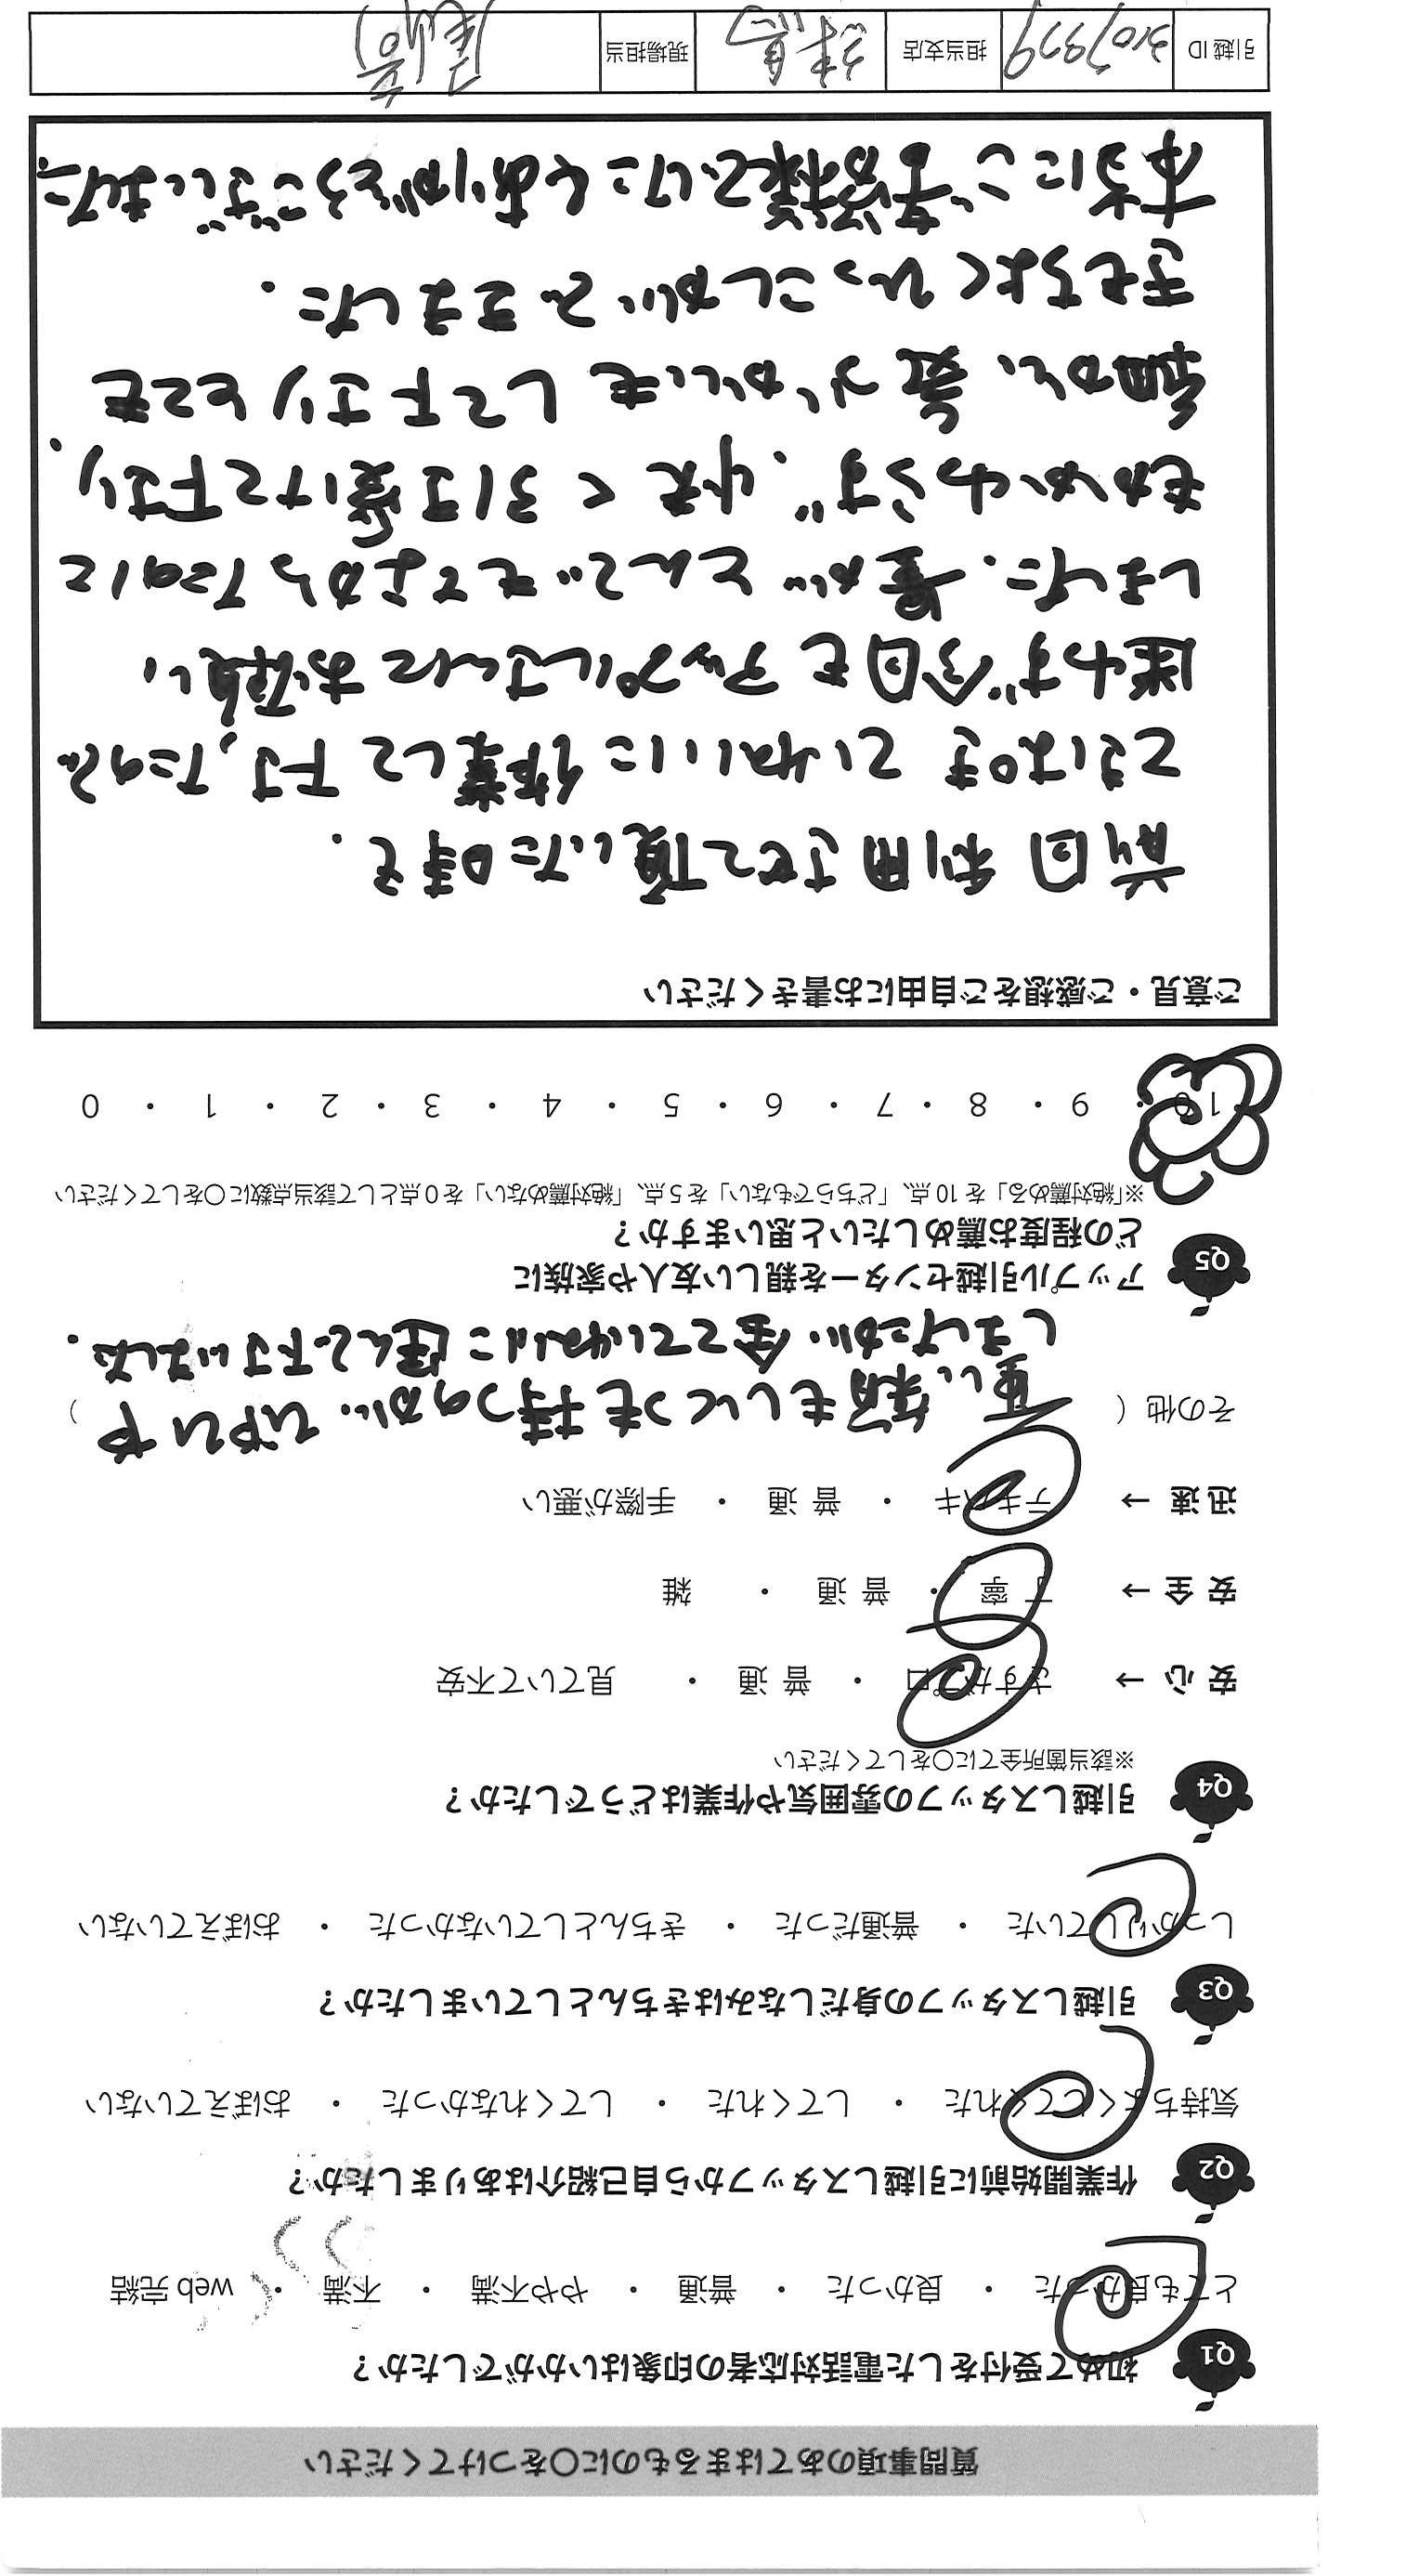 質問事項のあてはまるものに○をつけてください
Q1 初めて受付をした電話対応者の印象はいかがでしたか？
とても良かった ・ 良かった ・ 普通 ・ やや不満 ・ 不満 ・ web 完結
Q2 作業開始前に引越しスタッフから自己紹介はありましたか？
気持ちよくしてくれた ・ してくれた ・ してくれなかった ・ おぼえていない
Q3 引越しスタッフの身だしなみはきちんとしていましたか？
しっかりしていた ・ 普通だった ・ きちんとしていなかった ・ おぼえていない
Q4 引越しスタッフの雰囲気や作業はどうでしたか？
※該当箇所全てに○をしてください
安 心 → さすがプロ ・ 普 通 ・ 見ていて不安
安 全 → 丁 寧 ・ 普 通 ・ 雑
迅 速 → テキパキ ・ 普 通 ・ 手際が悪い
その他 ( 重い箱もいくつも持つのが、ひやひや )
しましたが、全てていねいに運んで下さいました。
Q5 アップル引越センターを親しい友人や家族に
どの程度お薦めしたいと思いますか？
※「絶対薦める」を 10 点、「どちらでもない」を 5 点、「絶対薦めない」を 0 点として該当点数に○をしてください
10 ・ 9 ・ 8 ・ 7 ・ 6 ・ 5 ・ 4 ・ 3 ・ 2 ・ 1 ・ 0
ご意見・ご感想をご自由にお書きください
前回利用させて頂いた時も、
てきぱき ていねいに作業して下さったので
迷わず今回もアップルさんにお願い
しました。量が とんでもなく多かったのに
もかかわらず、快く引き受けて下さり、
細かい気づかいも して下さり とても
きもちよく ひっこしが できました。
本当にご苦労様でした&ありがとうございました。
引越 ID 3107379 担当支店 練馬 現場担当 尾崎